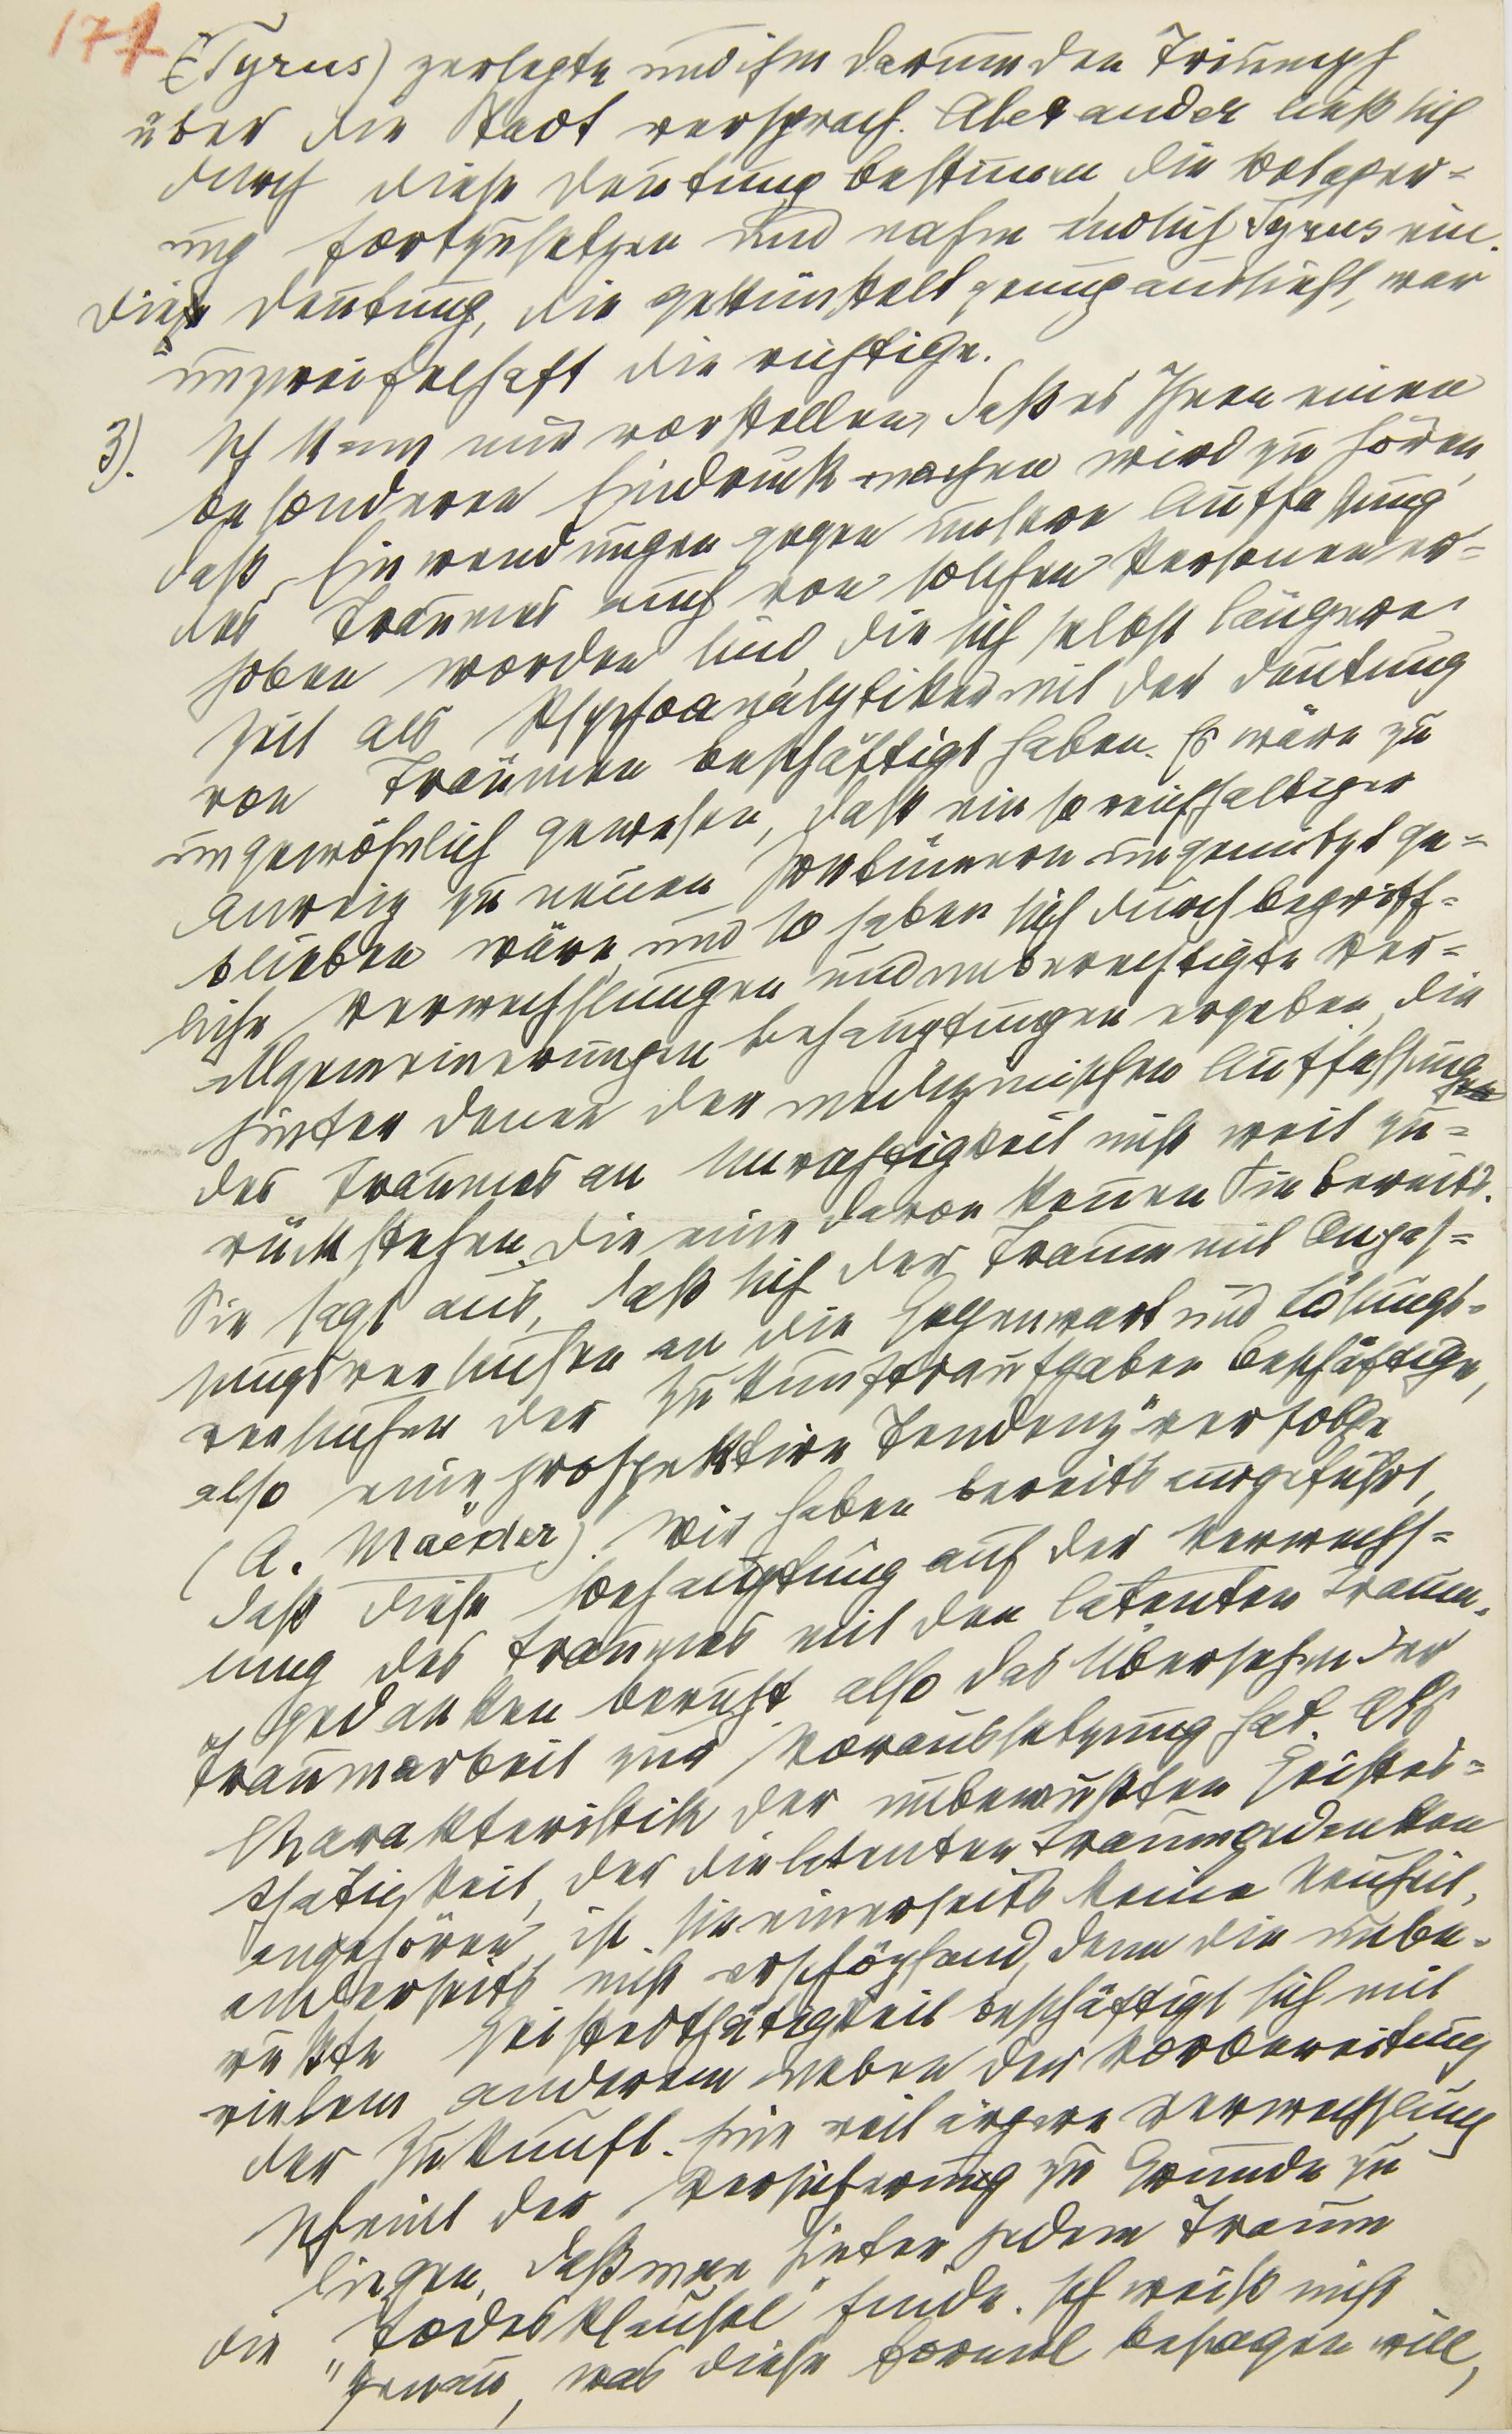 171
(Tyrus) zerlegte und ihm darum den Triumph
über die Stadt versprach. Alexander ließ sich
durch diese Deutung bestimmen, die Belager=
ung fortzusetzen und nahm endlich Tyrus ein.
Diese Deutung, die gekünstelt genug aussieht, war
unzweifelhaft die richtige.
3). Ich kann mir vorstellen, daß es Ihnen einen
besonderen Eindruck machen wird zu hören,
daß Einwendungen gegen unsere Auffassung
des Traumes auch von solchen Personen er=
hoben worden sind, die sich selbst längere
Zeit als Psychoanalytiker mit der Deutung
von Träumen beschäftigt haben. Es wäre zu
ungewöhnlich gewesen, daß ein so reichhaltiger
Anreiz zu neuen Irrtümern ungenützt ge=
blieben wäre, und so haben sich durch begriff=
liche Verwechslungen und unberechtigte Ver=
allgemeinerungen Behauptungen ergeben, die
hinter denen der medizinischen Auffassung
des Traumes an Unrichtigkeit nicht weit zu=
rückstehen. Die eine davon kennen Sie bereits.
Sie sagt aus, daß sich der Traum mit Anpas=
sungsversuchen an die Gegenwart und Lösungs=
versuchen der Zukunftsaufgaben beschäftige,
also eine „prospektive Tendenz" verfolge
(A. Maeder). Wir haben bereits angeführt,
daß diese Behauptung auf der Verwechs=
lung des Traumes mit den latenten Traum=
gedanken beruht, also das Übersehen der
Traumarbeit zur Voraussetzung hat. Als
Charakteristik der unbewußten Geistes=
thätigkeit, der die latenten Traumgedanken
angehören, ist sie einerseits keine Neuheit,
anderseits nicht erschöpfend, denn die unbe=
wußte Geistesthätigkeit beschäftigt sich mit
vielem anderem neben der Vorbereitung
der Zukunft. Eine weit ärgere Verwechslung
scheint der Versicherung zu Grunde zu
liegen, daß man hinter jedem Traum
die „Todesklausel" finde. Ich weiß nicht
genau, was diese Formel besagen will,